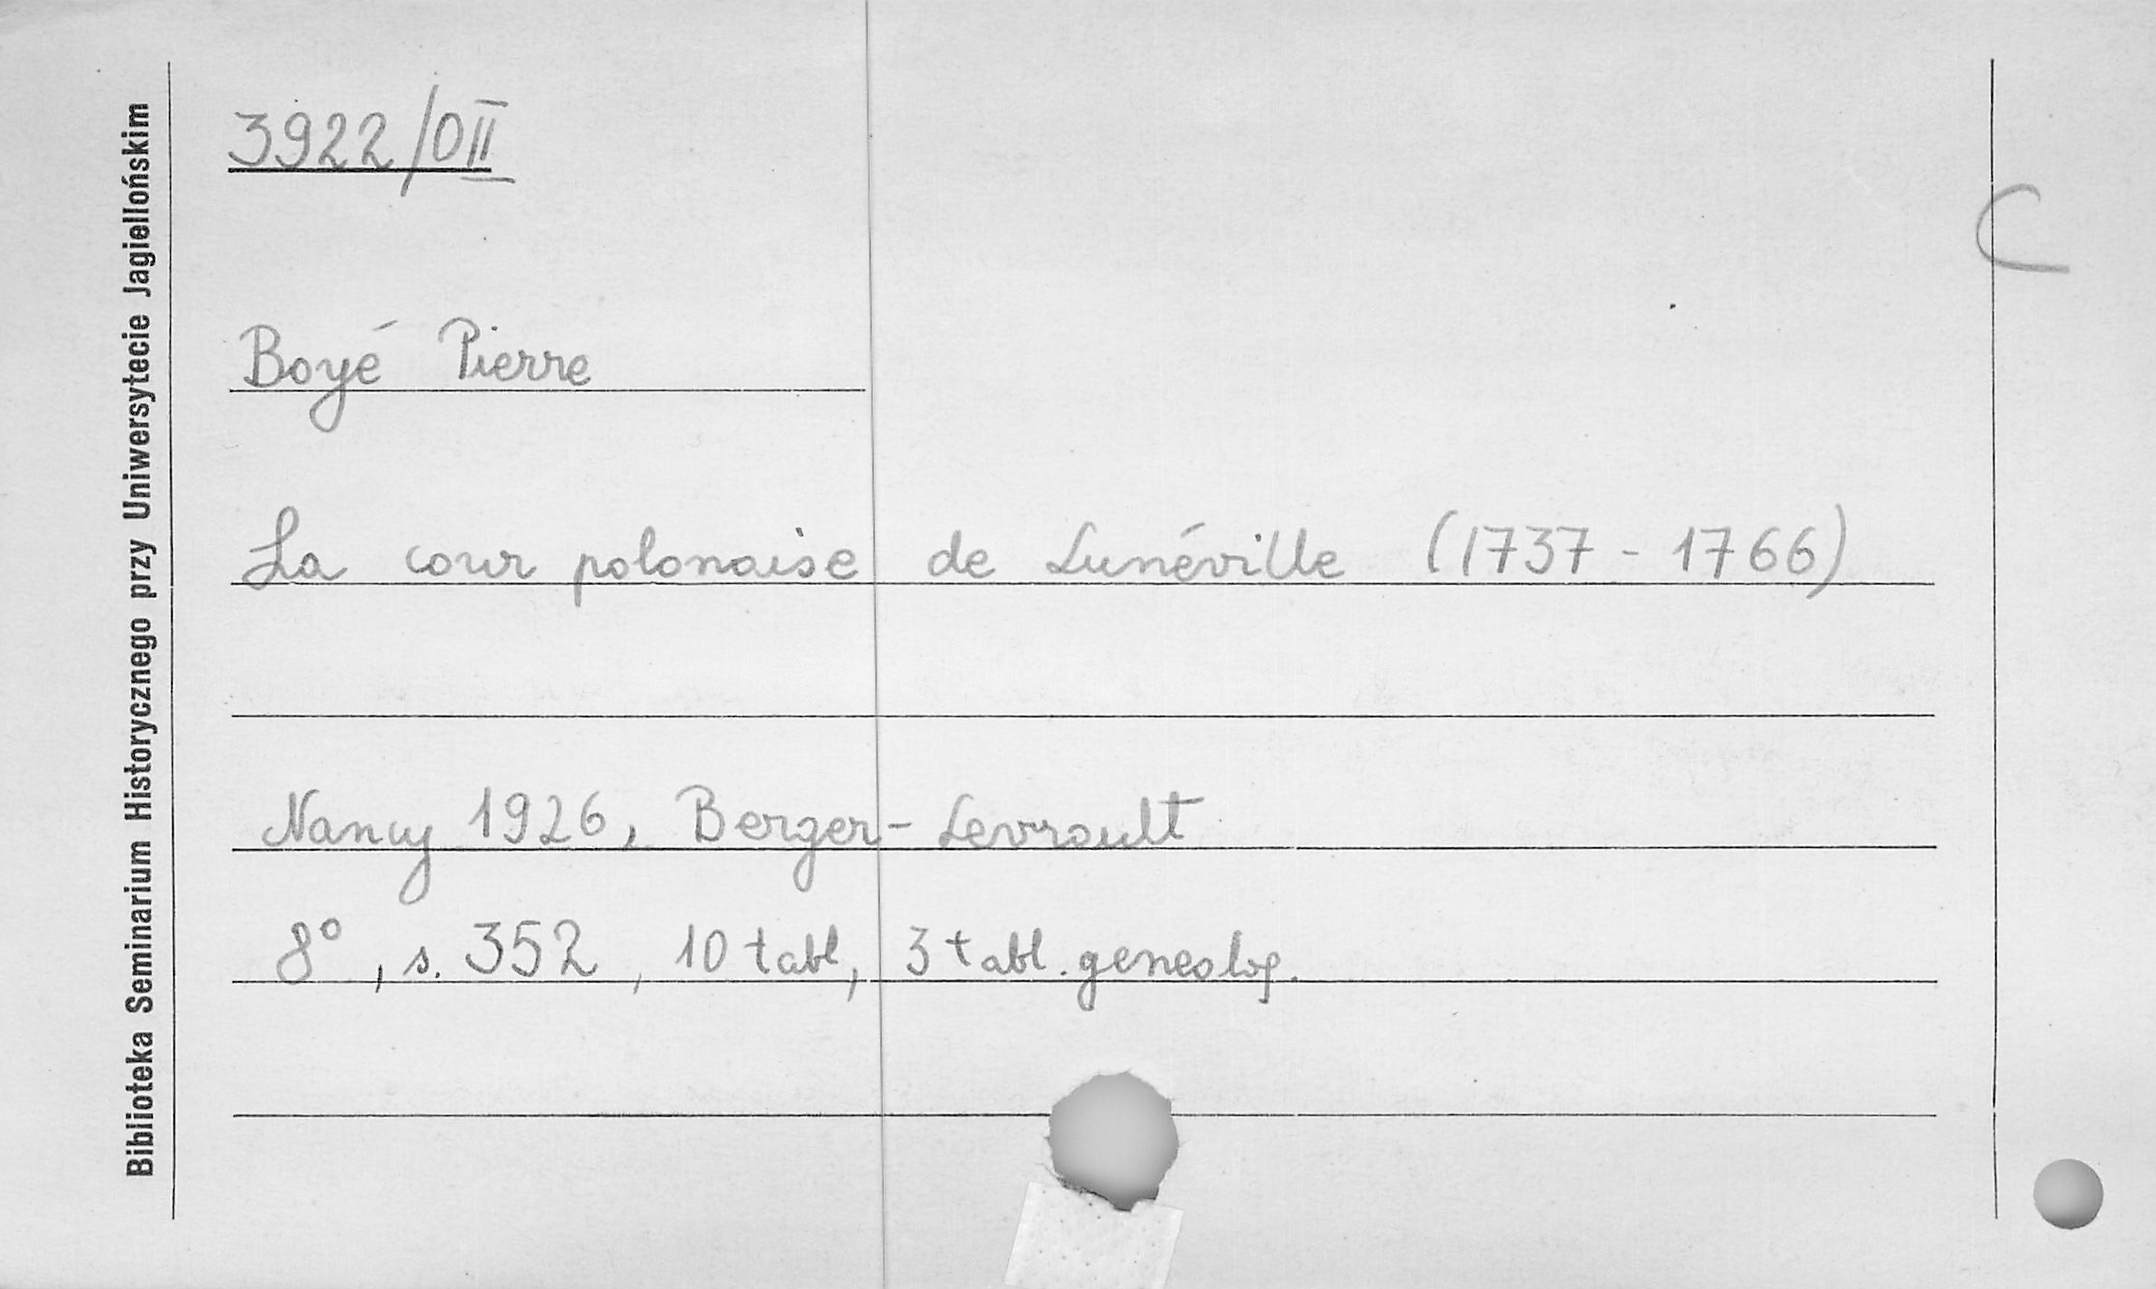 Biblioteka Seminarium Historycznego przy Uniwersytecie Jagiellońskim
3922/0II
C
Boyé Pierre
La cour polonaise de Lunéville (1737 - 1766)
Nancy 1926, Berger-Levrault
8°, s. 352, 10 tabl, 3 tabl. geneolog.